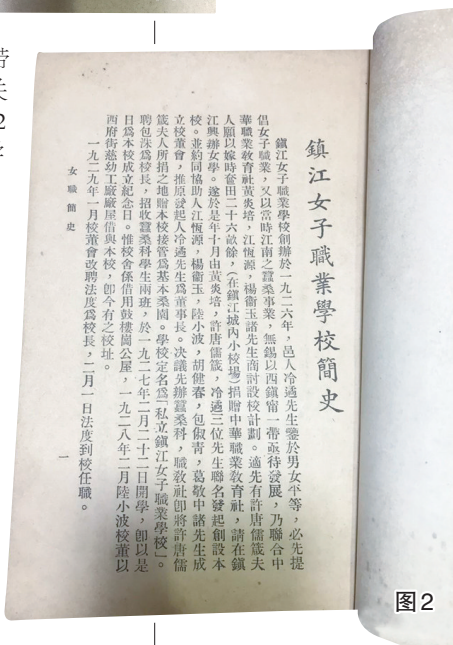 鎮江女子職業學校簡史
鎮江女子職業學校創辦於一九二六年，邑人冷遹先生鑒於男女平等，必先提
倡女子職業，又以當時江南之蠶桑事業，無錫以西鎮甯一帶亟待發展，乃聯合中
華職業敎育社黃炎培，江恆源，楊衞玉諸先生商討設校計劃。適先有許唐儒箴夫
人願以嫁時奩田二十六畝餘，（在鎮江城內小校場）捐贈中華職業敎育社，請在鎮
江興辦女學。遂於是年十月由黃炎培，許唐儒箴，冷遹三位先生聯名發起創設本
校。並約同協助人江恆源，楊衞玉，陸小波，胡健春，包俶青，葛敬中諸先生成
立校董會，推原發起人冷遹先生爲董事長。決議先辦蠶桑科，職敎社卽將許唐儒
箴夫人所捐之地贈本校接管爲基本桑園。學校定名爲「私立鎮江女子職業學校」。
聘包洙爲校長，招收蠶桑科學生兩班，於一九二七年二月二十二日開學，卽以是
日爲本校成立紀念日。惟校舍係借用鼓樓崗公屋，一九二八年二月陸小波校董以
西府街慈幼工廠廠屋借與本校，卽今有之校址。
一九二九年一月校董會改聘法度爲校長，二月一日法度到校任職。
女職簡史
一
图2